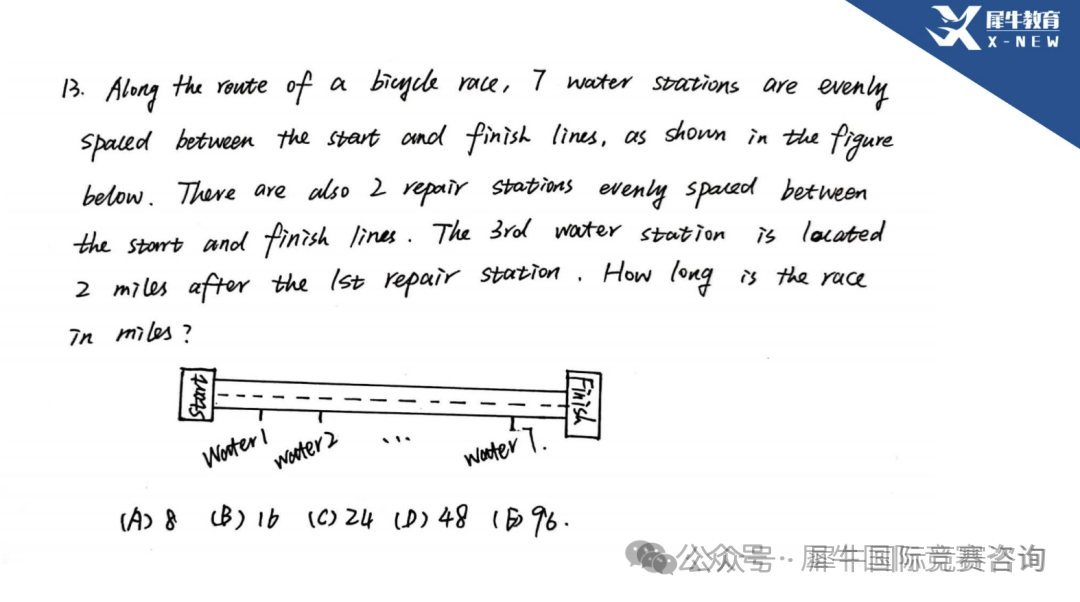 犀牛教育
X-NEW
13. Along the route of a bicycle race, 7 water stations are evenly
spaced between the start and finish lines, as shown in the figure
below. There are also 2 repair stations evenly spaced between
the start and finish lines. The 3rd water station is located
2 miles after the 1st repair station. How long is the race
in miles?
Start
Finish
Water1
water2
...
water7.
(A) 8 (B) 16 (C) 24 (D) 48 (E) 96.
公众号·犀牛国际竞赛咨询